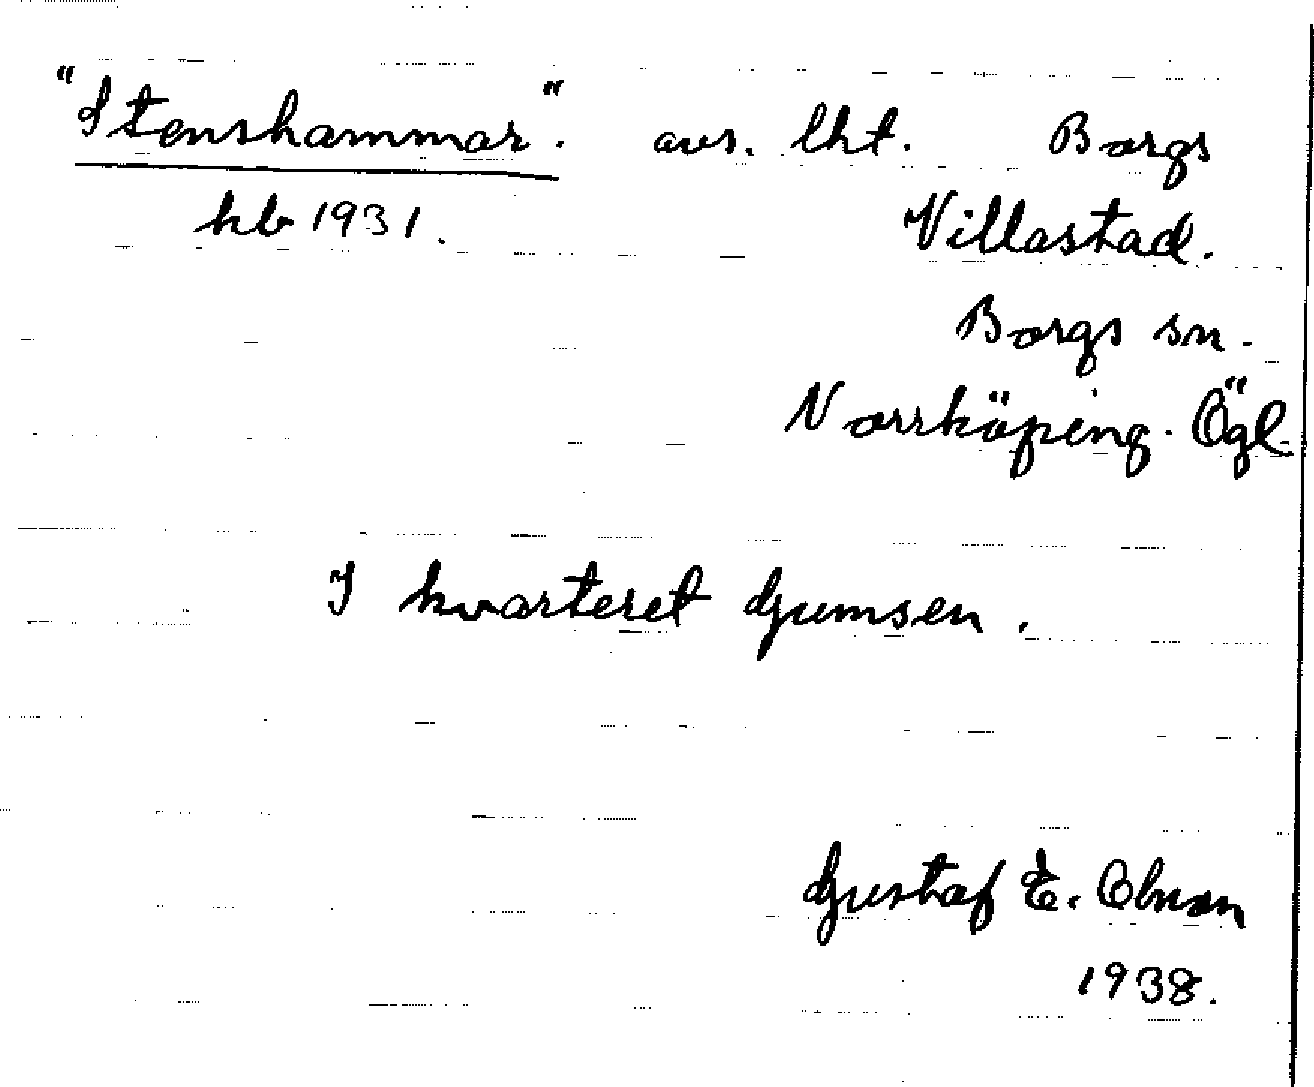 "Stenshammar". avs. lht. Borgs
kb 1931. Villastad.
Borgs sn.
Norrköping. Ögl.
I kvarteret Gumsen.
Gustaf E. Olsson
1938.